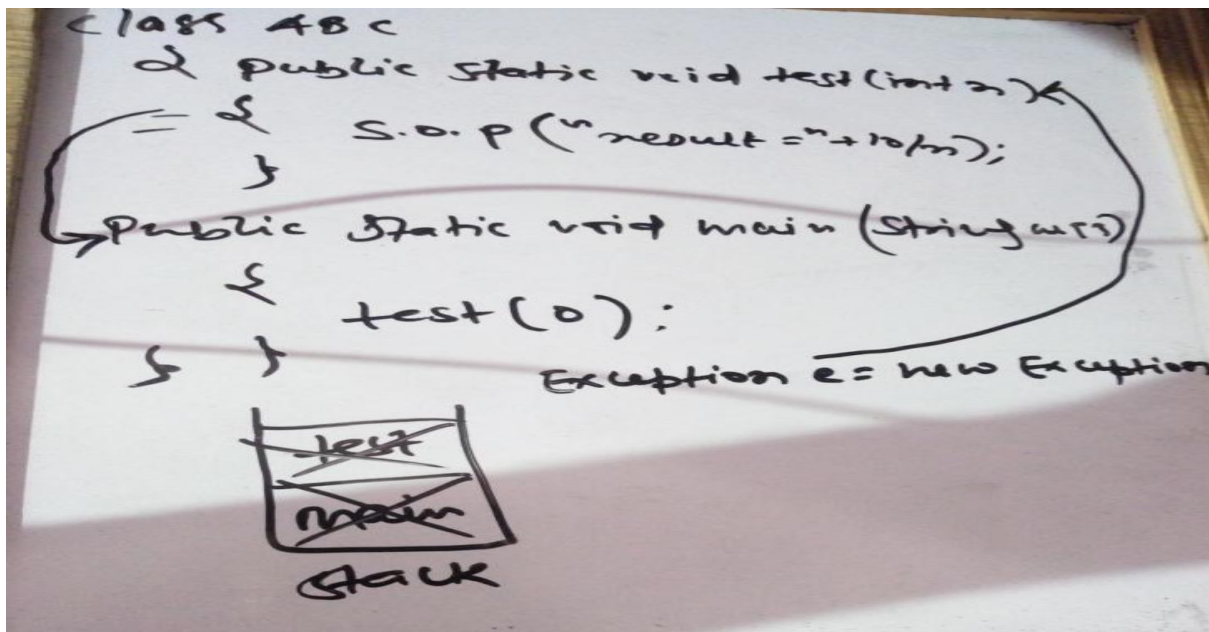 class ABC
{ public static void test(int n)
{ S.O.P("result ="+10/n);
}
public static void main (String args)
{
test(0);
} }
Exception e = new Exception
test
main
stack